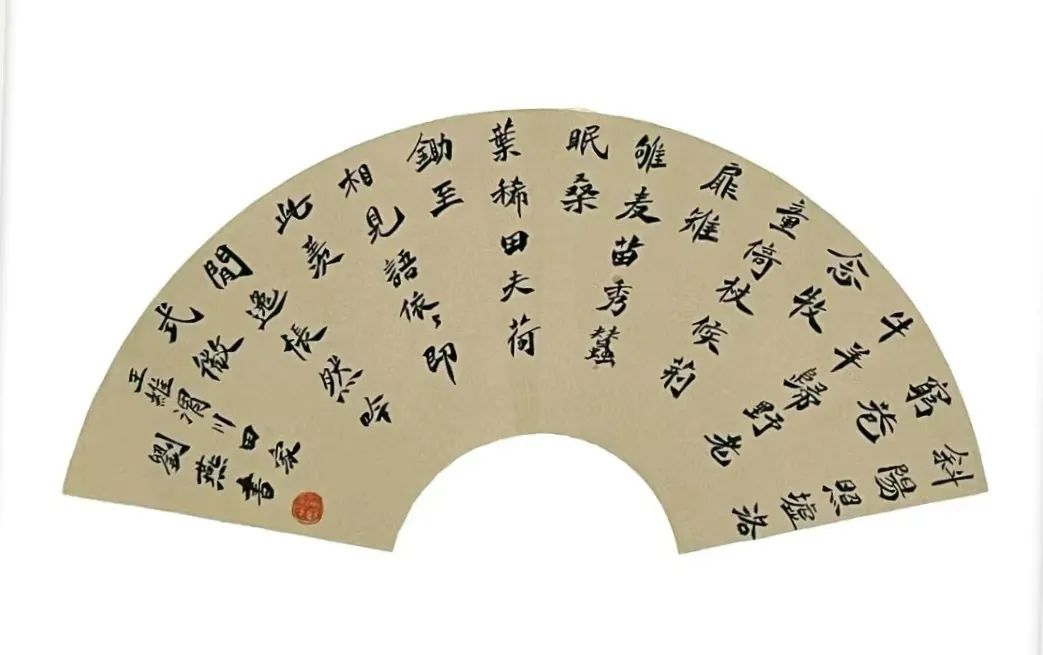 斜陽照墟洛
窮巷
牛羊歸野老
念牧
童倚杖候荊
扉雉
雊麦苗秀蠶
眠桑
葉稀田夫荷
鋤至
相見語依〻即
此羨
閒逸悵然吟
式微
王維渭川田家
劉燕書